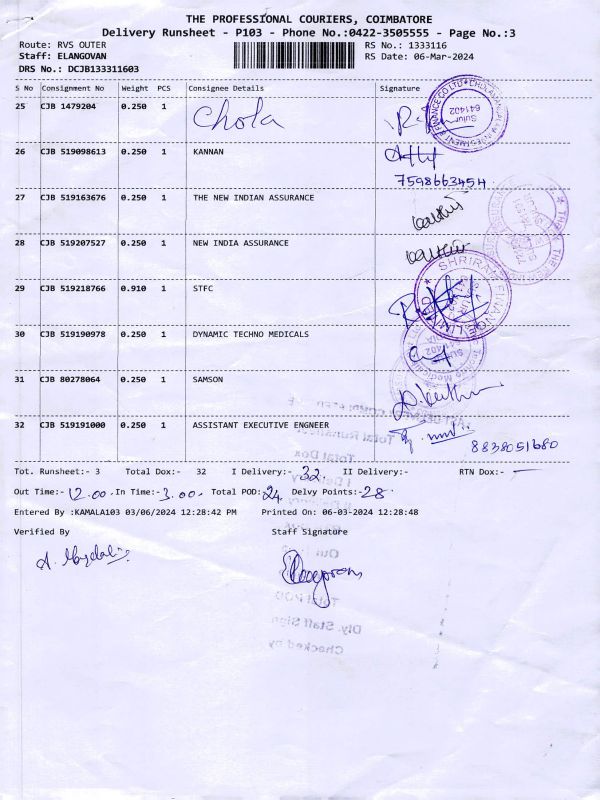 THE PROFESSIONAL COURIERS, COIMBATORE
Delivery Runsheet - P103 - Phone No.:0422-3505555 - Page No.:3
Route: RVS OUTER RS No.: 1333116
Staff: ELANGOVAN RS Date: 06-Mar-2024
DRS No.: DCJB133311603
S No Consignment No Weight PCS Consignee Details Signature
25 CJB 1479204 0.250 1 Chola
CHOLAMANDALAM INVESTMENT & FINANCE CO LTD
Sulur
641402
26 CJB 519098613 0.250 1 KANNAN
7598663454
27 CJB 519163676 0.250 1 THE NEW INDIAN ASSURANCE
28 CJB 519207527 0.250 1 NEW INDIA ASSURANCE
29 CJB 519218766 0.910 1 STFC
SHRIRAM FINANCE LIMITED
30 CJB 519190978 0.250 1 DYNAMIC TECHNO MEDICALS
31 CJB 80278064 0.250 1 SAMSON
32 CJB 519191000 0.250 1 ASSISTANT EXECUTIVE ENGNEER
8838051680
Tot. Runsheet:- 3 Total Dox:- 32 I Delivery:- 32 II Delivery:- RTN Dox:- —
Out Time:- 12.00. In Time:- 3.00. Total POD: 24 Delvy Points:- 28
Entered By :KAMALA103 03/06/2024 12:28:42 PM Printed On: 06-03-2024 12:28:48
Verified By Staff Signature
Total Runsheet
Total Dox
Total POD
Dly. Staff Sign
Checked by